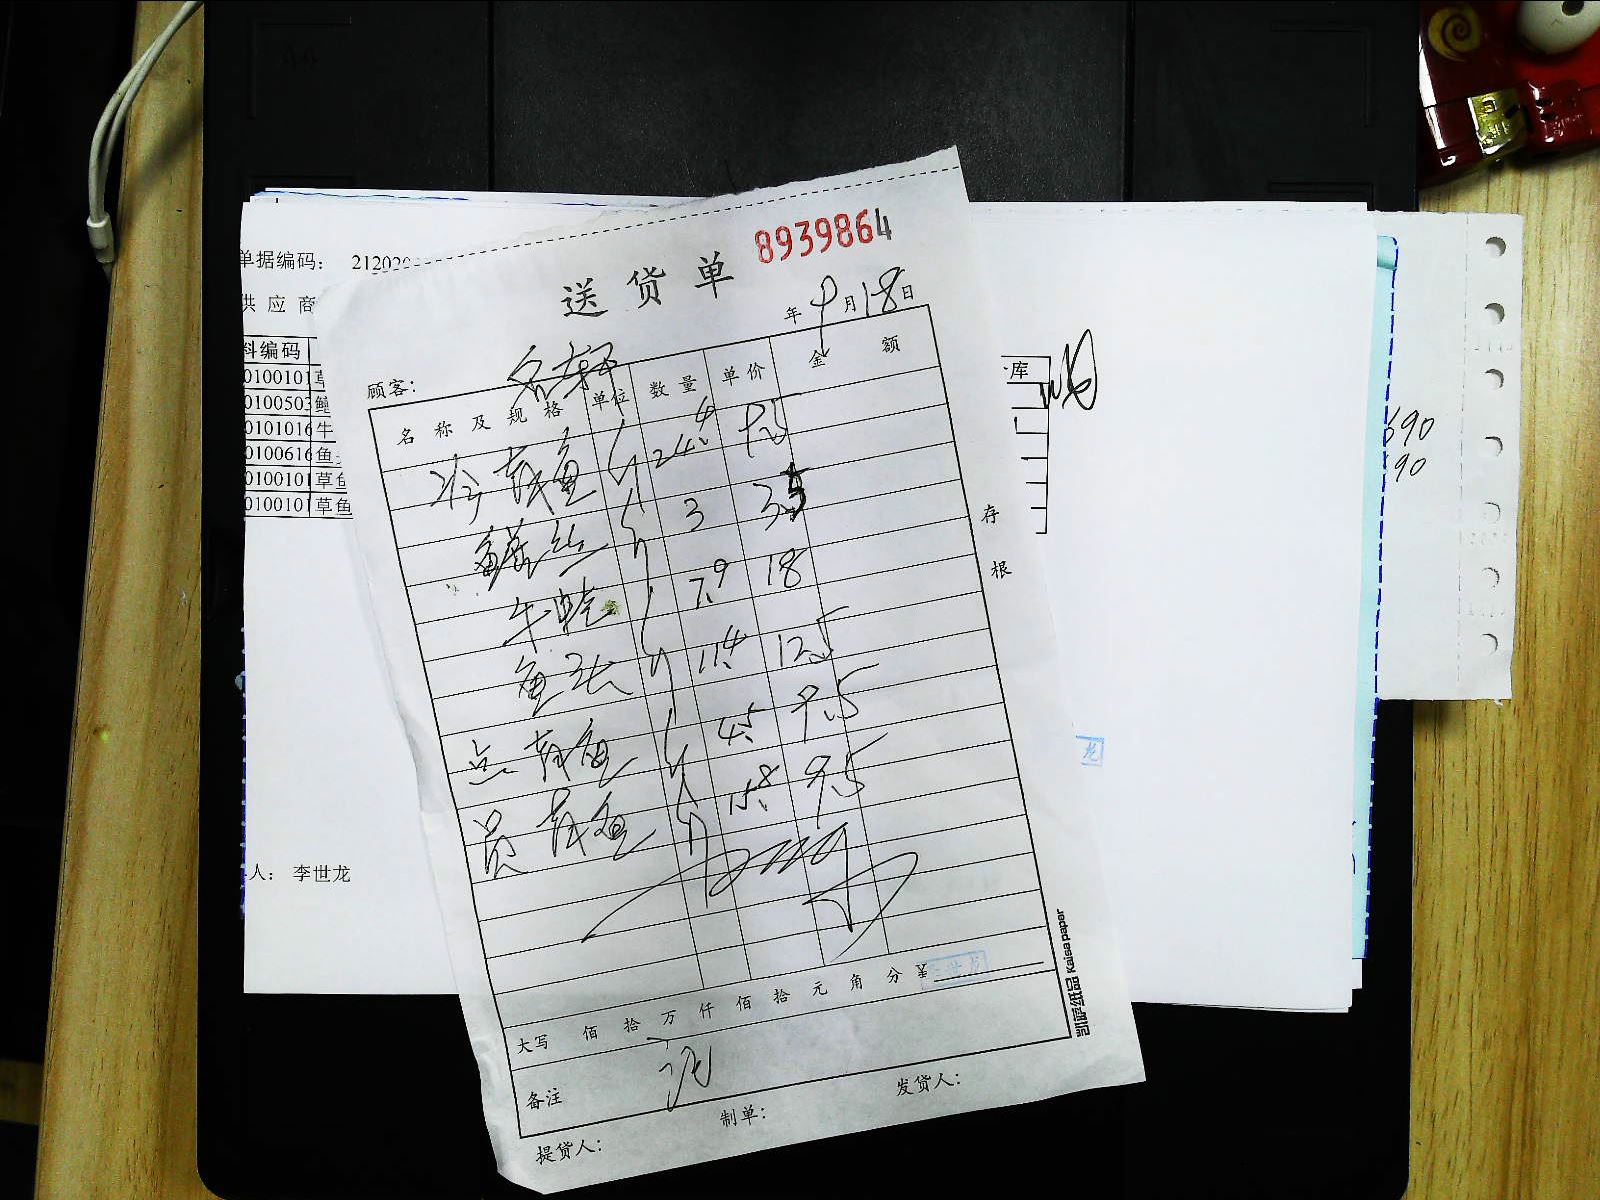 8939864
送货单
年 9月18日
顾客：名轩
名称及规格 单位 数量 单价 金额
冷草鱼 斤 24.4 9.5
鳝丝 斤 3 35
牛蛙 斤 7.9 18
鱼头 斤 11.4 12.5
点草鱼 斤 4.5 9.5
员草鱼 斤 15.8 9.5
大写 佰 拾 万 仟 佰 拾 元 角 分 ¥
备注
提货人： 制单： 发货人：
存根
凯萨纸品 Kaisa paper
单据编码： 212020
供应商
料编码
0100101 草
0100503 鳝
0101016 牛
0100616 鱼
0100101 草鱼
0100101 草鱼
人： 李世龙
库
690
90
龙